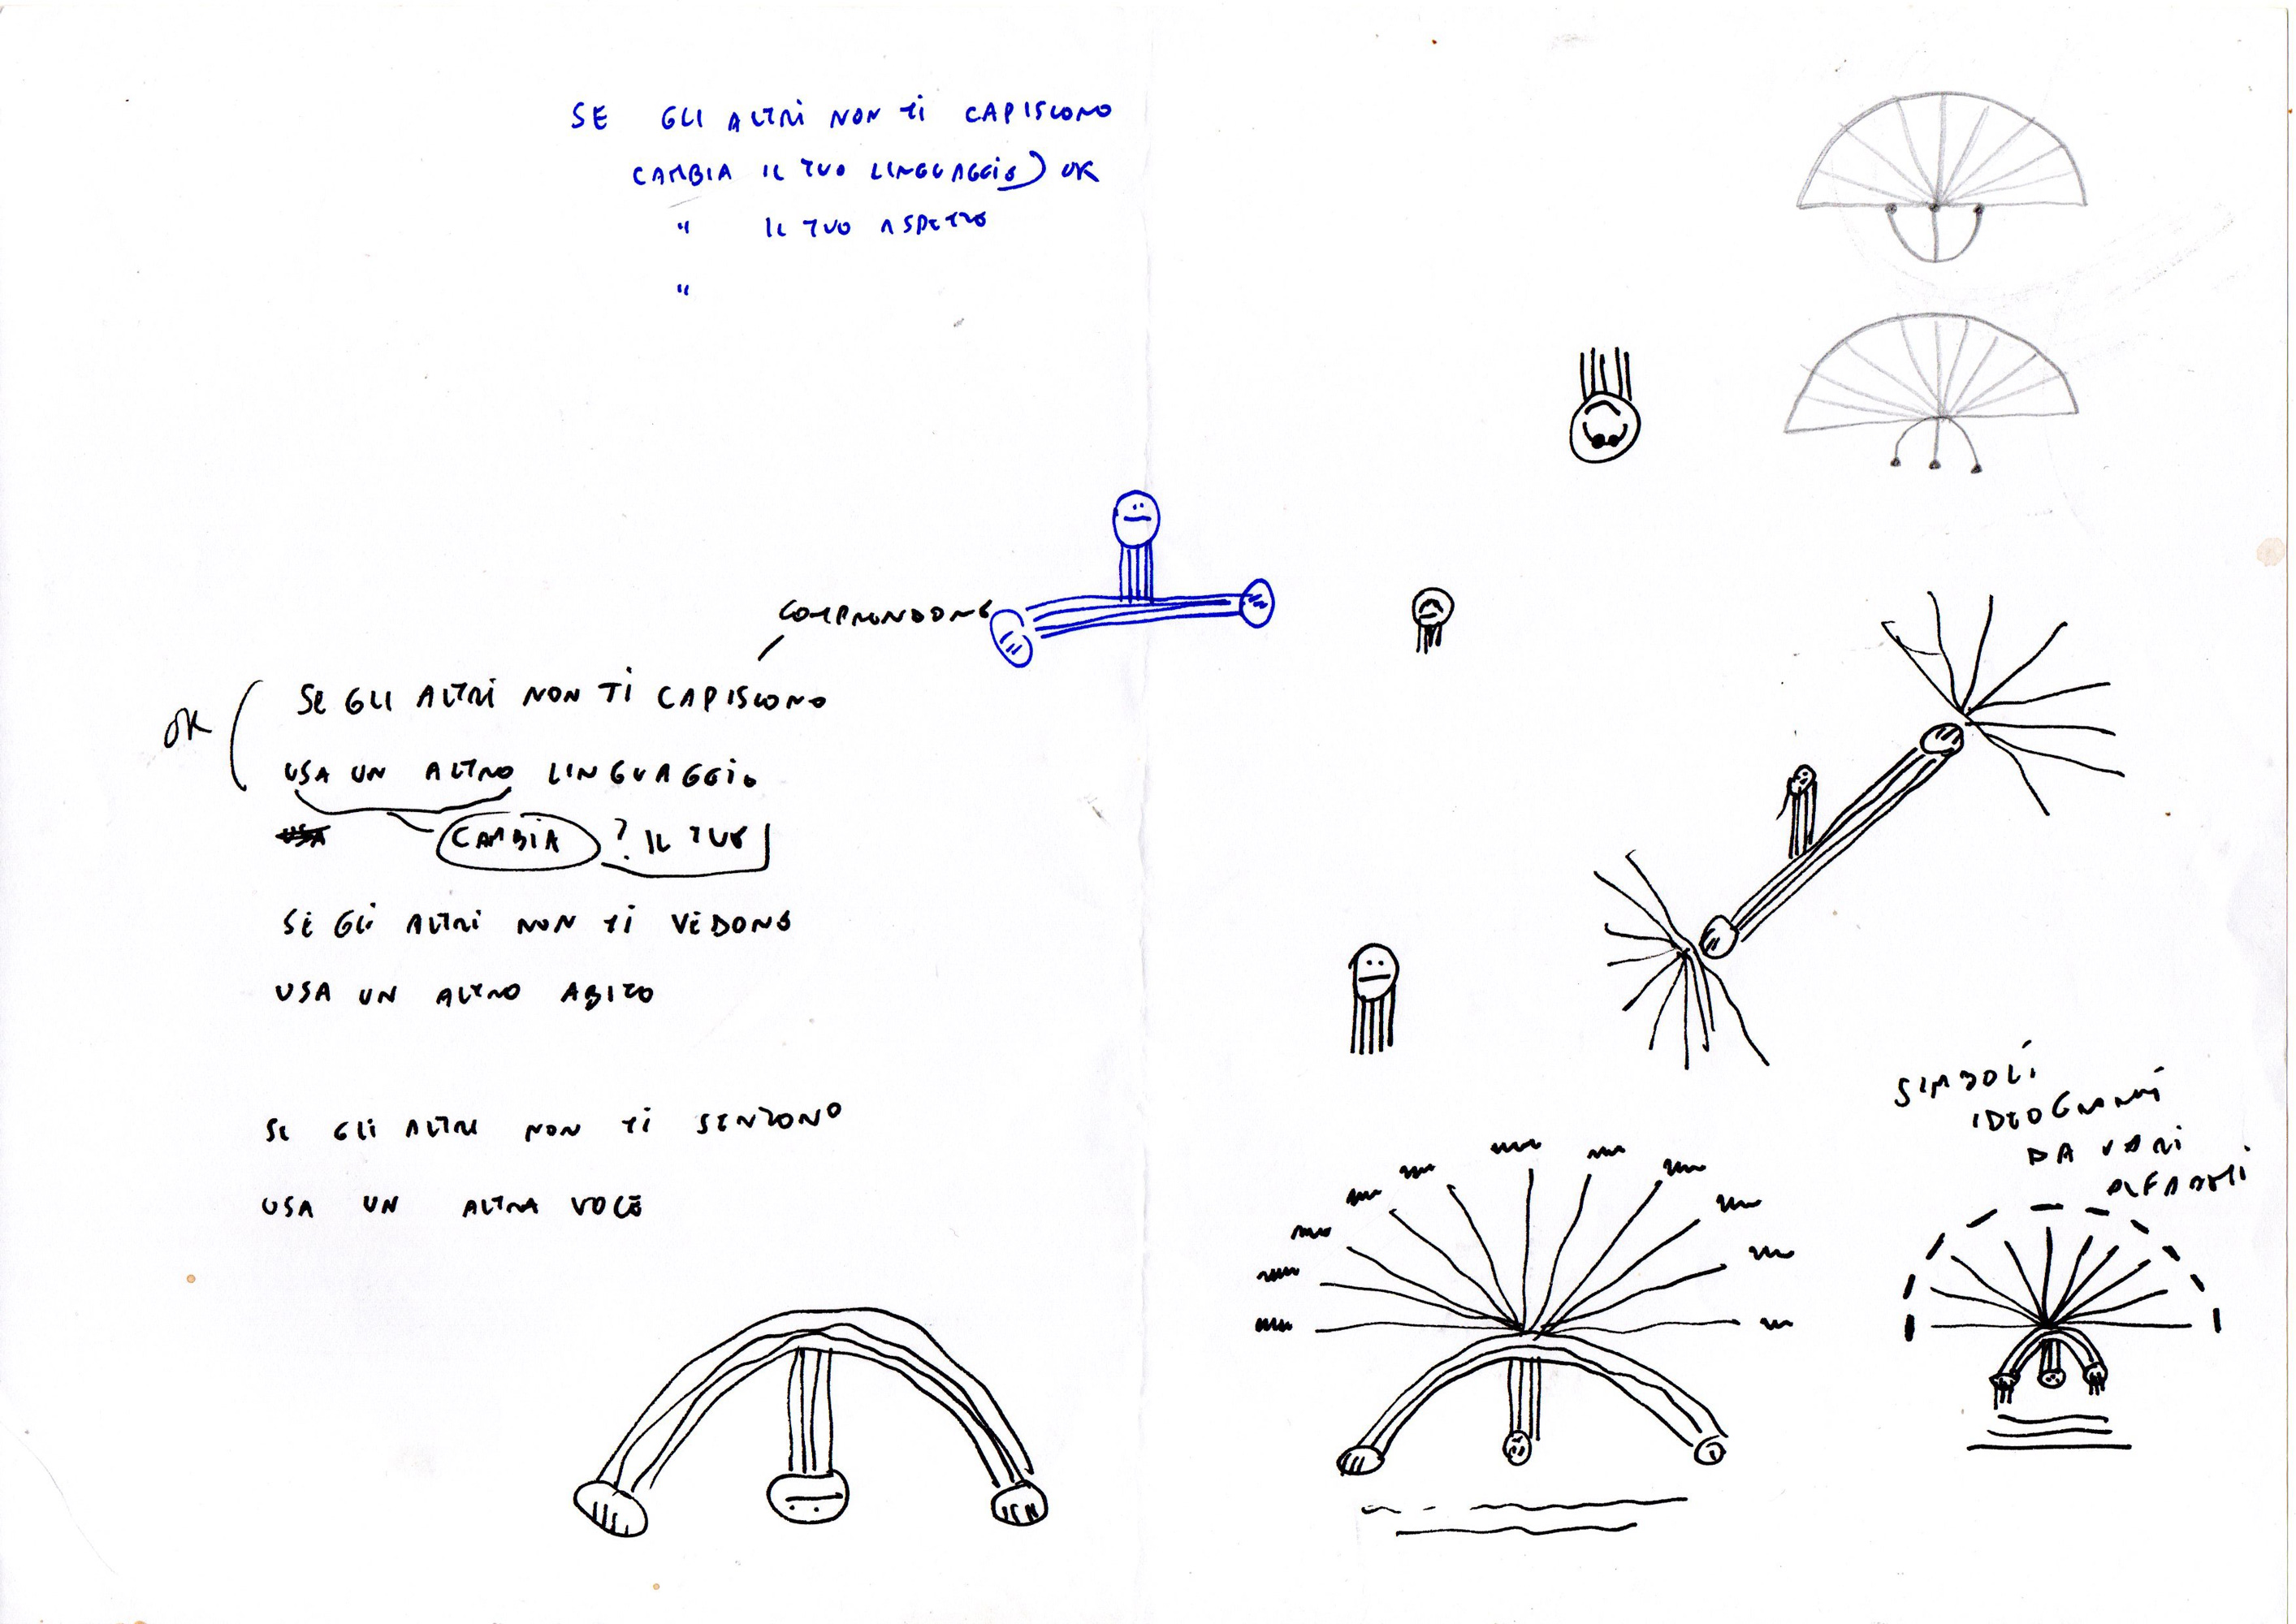 SE GLI ALTRI NON TI CAPISCONO
CAMBIA IL TUO LINGUAGGIO) OK
" IL TUO ASPETTO
"
COMPRENDONO
SE GLI ALTRI NON TI CAPISCONO
OK (
USA UN ALTRO LINGUAGGIO
USA CAMBIA ? IL TUO
SE GLI ALTRI NON TI VEDONO
USA UN ALTRO ABITO
SE GLI ALTRI NON TI SENTONO
USA UN ALTRA VOCE
SIMBOLI
IDEOGRAMMI
DA VARI
ALFABETI